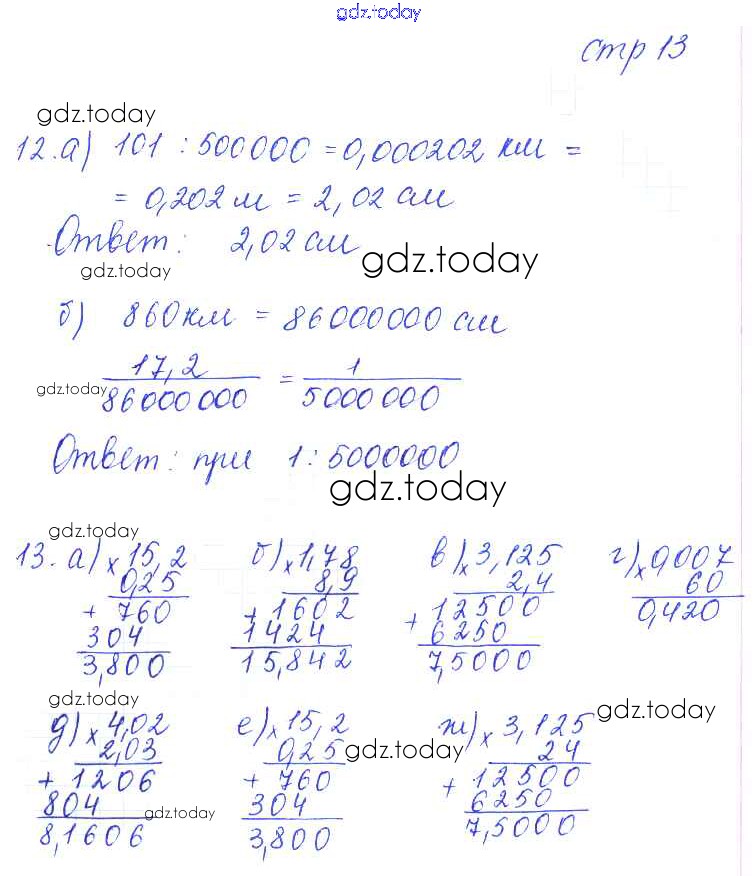 gdz.today
стр 13
gdz.today
12.а) 101 : 500000 = 0,000202 км =
= 0,202 м = 2,02 см
Ответ: 2,02 см
gdz.today
gdz.today
б) 860 км = 86000000 см
17,2 / 86000000 = 1 / 5000000
gdz.today
Ответ: при 1 : 5000000
gdz.today
gdz.today
13. а) × 15,2 б) × 1,78 в) × 3,125 г) × 0,007
0,25 8,9 2,4 60
+ 760 + 1602 + 12500 0,420
304 1424 6250
3,800 15,842 7,5000
gdz.today
gdz.today
д) × 4,02 е) × 15,2 ж) × 3,125
2,03 0,25 24
gdz.today
+ 1206 + 760 + 12500
804 304 6250
gdz.today
8,1606 3,800 7,5000